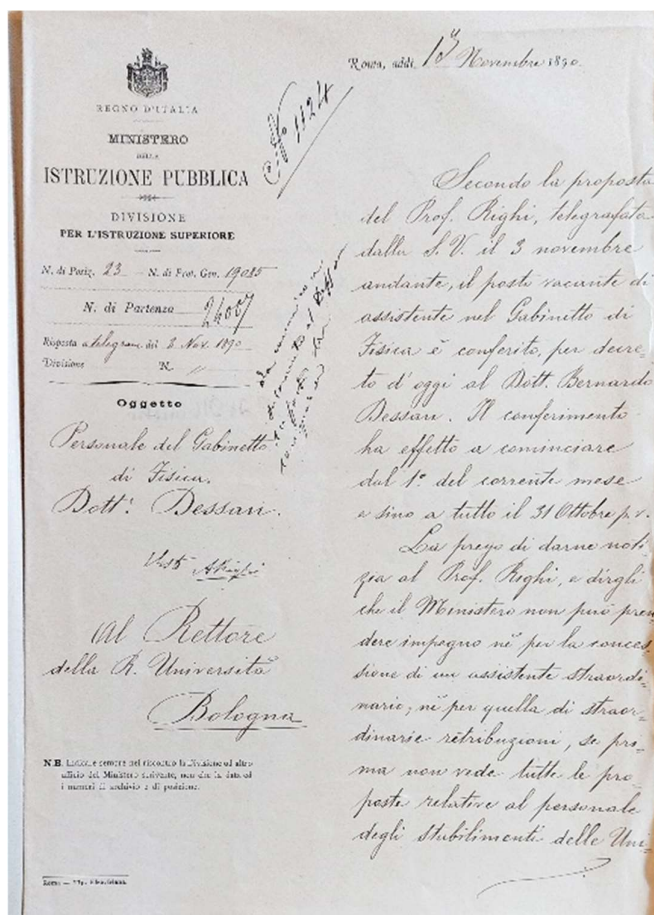 REGNO D'ITALIA
MINISTERO
DELLA
ISTRUZIONE PUBBLICA
DIVISIONE
PER L'ISTRUZIONE SUPERIORE
N. di Posiz. 23 N. di Prot. Gen. 19085
N. di Partenza 24007
Risposta a telegram. del 3 Nov. 1890
Divisione N. "
Oggetto
Personale del Gabinetto
di Fisica.
Dott. Dessau.
Visto ARighi
Al Rettore
della R. Università
Bologna
N.B. Indicare sempre nel riscontro la Divisione od altro
ufficio del Ministero scrivente, non che la data ed
i numeri di archivio e di posizione.
1124
Roma, addì 13 Novembre 1890
Secondo la proposta
del Prof. Righi, telegrafata
dalla S. V. il 3 novembre
andante, il posto vacante di
assistente nel Gabinetto di
Fisica è conferito, per decre-
to d'oggi al Dott. Bernardo
Dessau. Il conferimento
ha effetto a cominciare
dal 1° del corrente mese
e sino a tutto il 31 Ottobre p. v.
La prego di darne noti-
zia al Prof. Righi, e dirgli
che il Ministero non può pren-
dere impegno nè per la conces-
sione di un assistente straordi-
nario; nè per quella di straor-
dinarie retribuzioni, se pri-
ma non vede tutte le pro-
poste relative al personale
degli stabilimenti delle Uni-